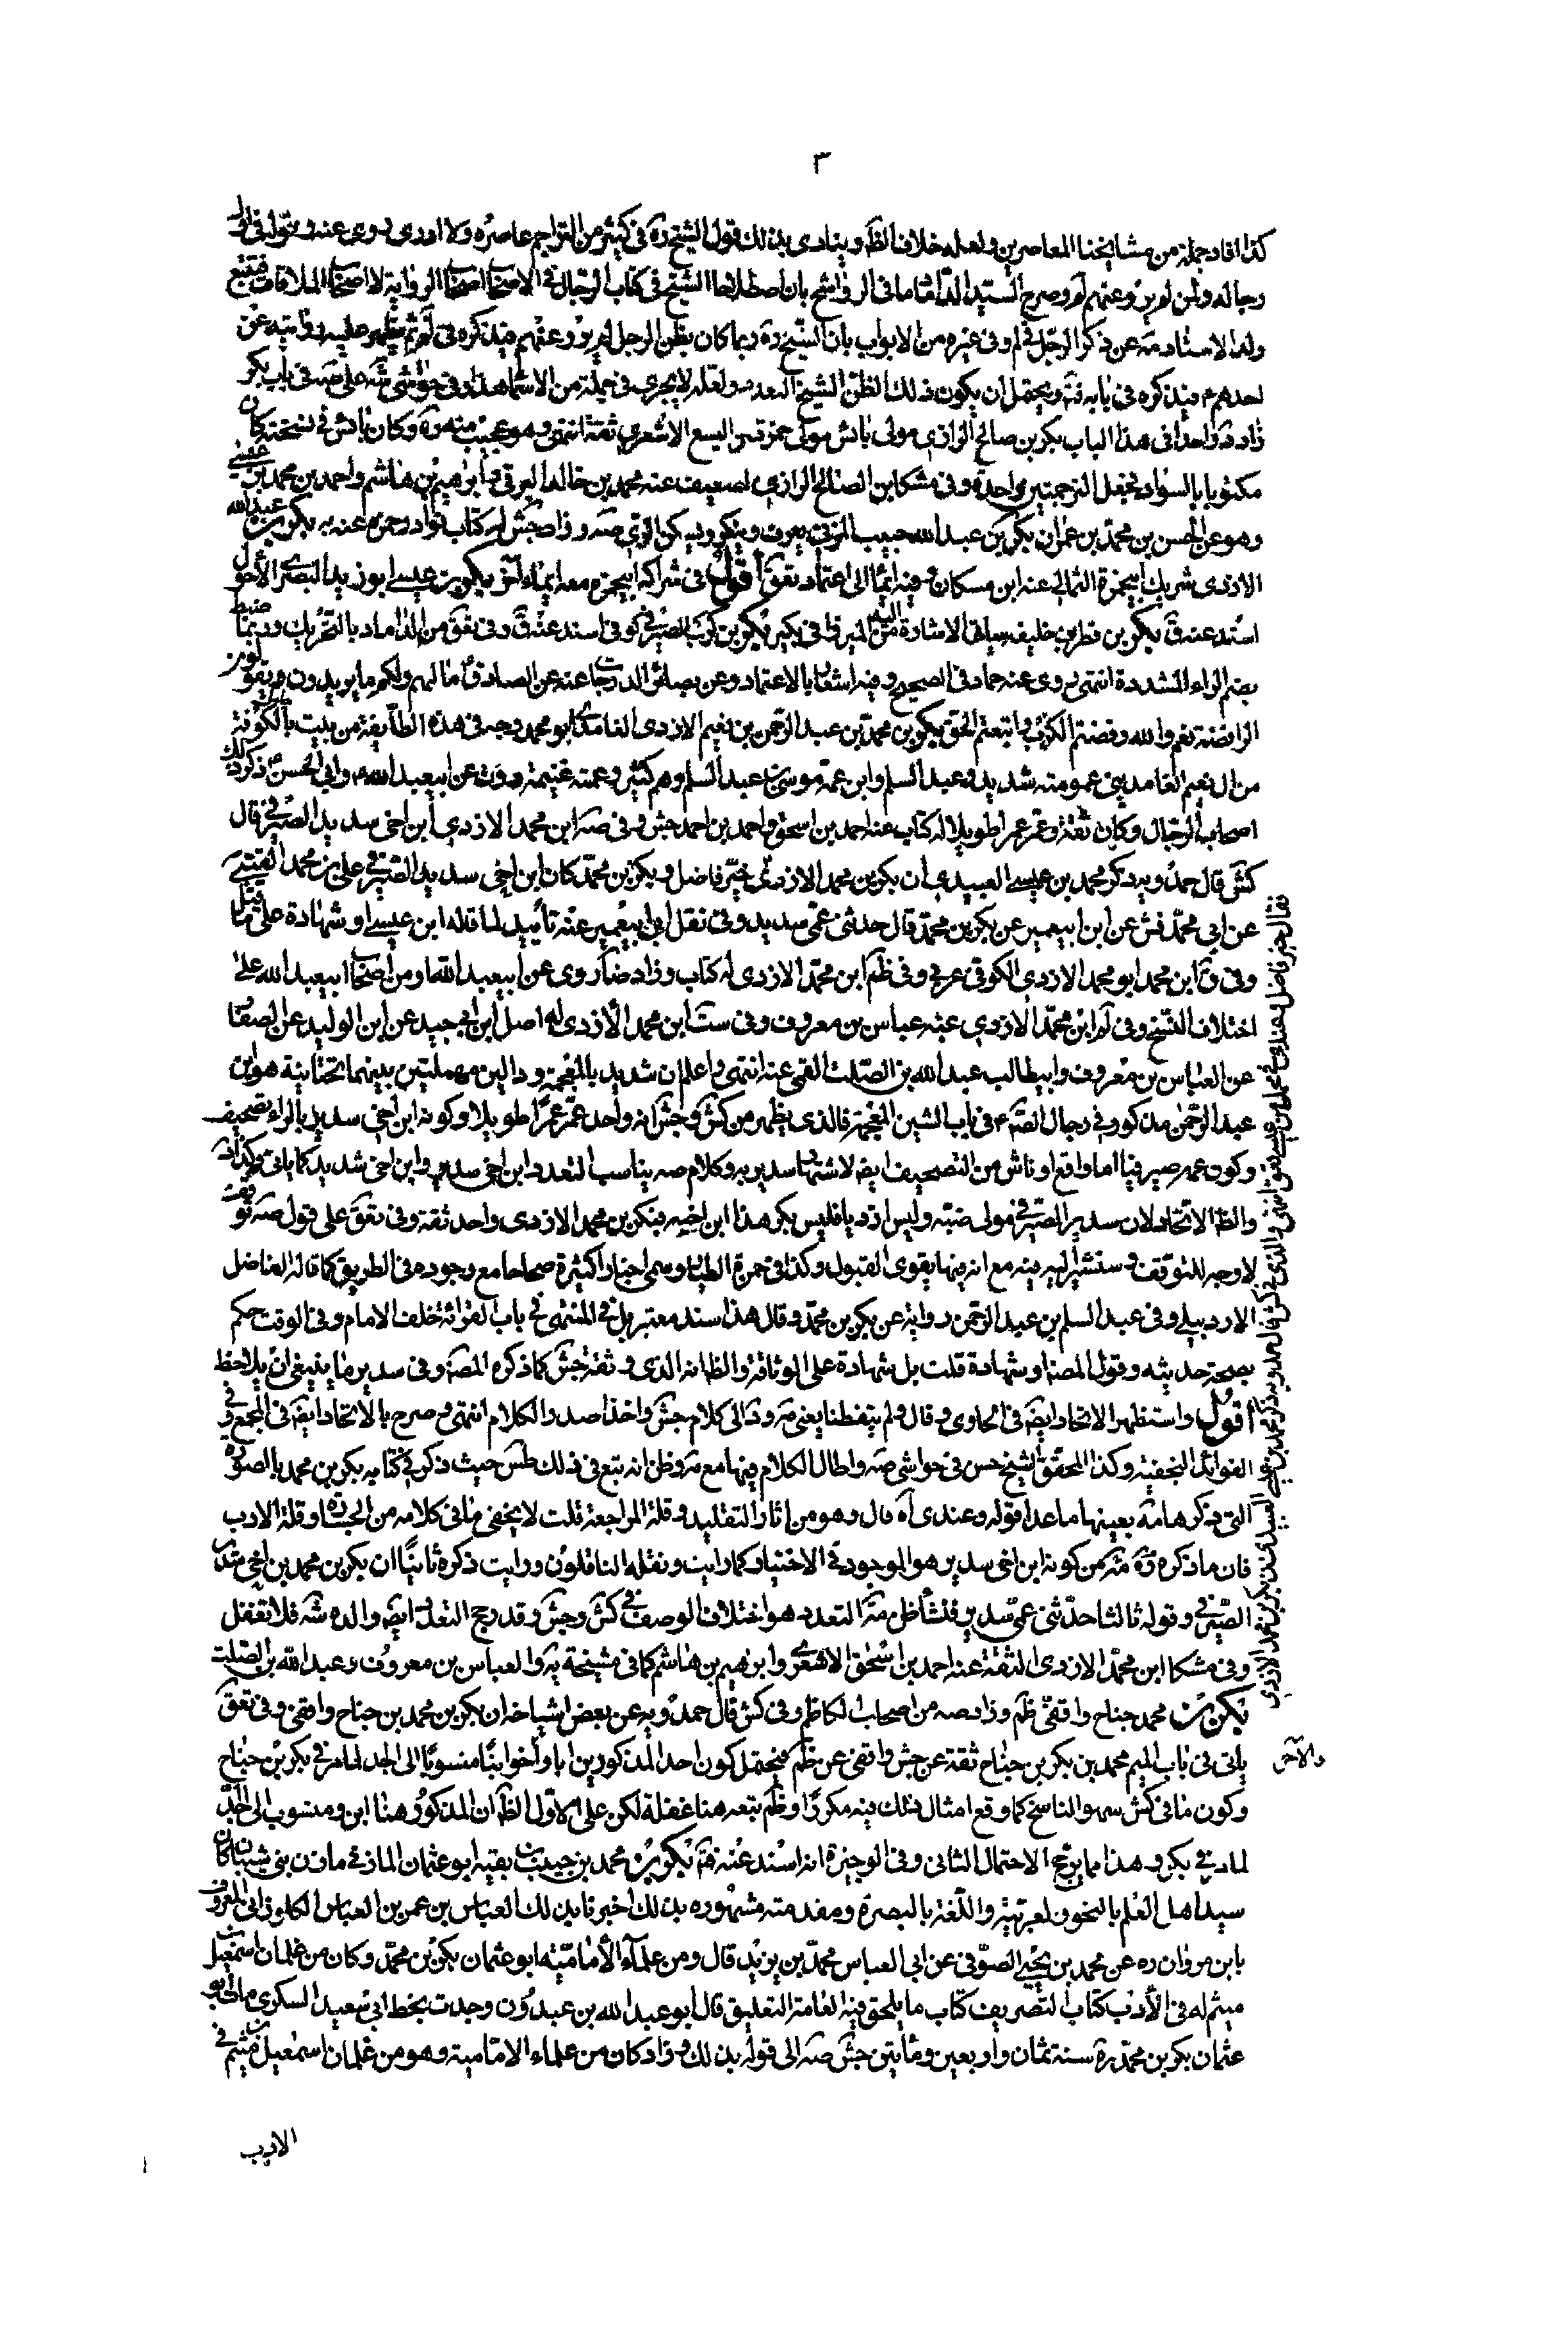 ٣
كذا افاد جملة من مشايخنا المعاصرين ولعله خلاف الظ وينادى بذلك قول الشيخ ره فى كثير من التراجم عاصره ولا ادرى روى عنه
رجاله ولمن لم يرو عنهم لم وصرح السيد الداماد فى الرواشح بان اصطلاح الشيخ فى كتاب الرجال فى الاصحاب اصحاب الرواية لا اصحاب الملاقات
ولد الاستاد مه عن ذكر الرجل فى لم وفى غيره من الابواب بان الشيخ ره ربما كان يظن الرجل لم يرو عنهم فيذكره فى لم ثم يظهر عليه روايته عن
احدهم فيذكره فى بابه ويحتمل ان يكون ذلك لظن الشيخ التعدد ولعله لا يجرى فى جملة من الاسماء هذا وفى حواشى شه على صه فى باب بكر
زاد د واحدا فى هذا الباب بكر بن صالح الرازى مولى بائس مولى حمزة بن اليسع الاشعرى ثقة انتهى وهو عجيب منه ره وكان بائس فى نسخته كان
مكتوبا بالسواد فجعل الترجمتين واحدة وفى مشكا ابن الصالح الرازى الضعيف عنه محمد بن خالد البرقى وابرهيم بن هاشم واحمد بن محمد بن عيسى
وهو عن الحسن بن محمد بن عمران بكر بن عبد الله حبيب المزنى يعرف وينكر ويسكن الرى صه وزاد جش له كتاب نوادر حمزة عنه به بكر بن عبد الله
الازدى شريك ابيحمزة الثمالى عنه ابن مسكان وفيه ايماء الى اعتماد تعق اقول فى شراكة ابيحمزة معه ايماء اخر بكر بن عيسى ابو زيد البصرى الاحول
اسند عنه ق بكر بن فطر بن خليفه سياتى الاشارة اليه من الميرزا فى بكير بكر بن كرب الصيرفى كوفى اسند عنه ق وفى تعق من الداماد بالتحريك وربما ضبط
بضم الراء المشددة انتهى روى عنه حماد فى الصحيح وفيه اشعار بالاعتماد وعن بصائر الدرجات عنه عن الصادق ع مالهم ولكم ما يريدون
الرافضة نعم والله رفضتم الكذب واتبعتم الحق بكر بن محمد بن عبد الرحمن بن نعيم الازدى الغامدى ابو محمد وجه فى هذه الطايفة من بيت بالكوفة
من ال نعيم الغامديين عمومته شديد وعبد السلم وابن عمه موسى بن عبد السلم وهم كثير وعمته غنيمة روت عن ابيعبد الله ع وابى الحسن ع ذكر ذلك
اصحاب الرجال وكان ثقة وعمر عمرا طويلا له كتاب عنه احمد بن اسحق واحمد بن احمد جش وفى صه ابن محمد الازدى ابن اخى سدير الصيرفى قال
كش قال حمدويه ذكر محمد بن عيسى العبيدى ان بكر بن محمد الازدى خير فاضل وبكر بن محمد كان ابن اخى سدير الصيرفى على بن محمد القتيبى
عن ابى محمد فش عن ابن ابيعمير عن بكر بن محمد قال حدثنى عمى سدير وفى نقل ابن ابيعمير عنه تاييد لما قاله ابن عيسى او شهادة على ما قيل
وفى ق ابن محمد ابو محمد الازدى الكوفى عربى وفى ظم ابن محمد الازدى له كتاب وزاد ضا روى عن ابيعبد الله ومن اصحاب ابيعبد الله على
اختلاف النسخ وفى لم ابن محمد الازدى عنه عباس بن معروف وفى ست ابن محمد الازدى له اصل ابن ابى جيد عن ابن الوليد عن الصفار
عن العباس بن معروف وابيطالب عبد الله بن الصلت القمى عنه انتهى واعلم ان شديد بالمعجمة ودالين مهملتين بينهما تحتانية هو ابن
عبد الرحمن مذكور فى رجال الصادق ع فى باب الشين المعجمة فالذى يظهر من كش وجش انه واحد عمر عمرا طويلا وكونه ابن اخى سدير بالراء تصحيف
وكون عمه صيرفيا اما واقع او ناش من التصحيف ايضا لاشتهار سدير به وكلام صه يناسب التعدد ابن اخى سدير وابن اخى شديد كما ياتى
والظ الاتحاد لان سدير الصيرفى مولى ضبة وليس ازديا فليس بكر هذا ابن اخيه فبكر بن محمد الازدى واحد ثقة وفى تعق على قول صه
لا وجه للتوقف وسنشير اليه فيه مع انه فيها يقوى القبول وكذا فى حمزة الطيار وسمى اخبارا كثيرة صحاحا مع وجوده فى الطريق كما قاله الفاضل
الاردبيلى وفى عبد السلم بن عبد الرحمن رواية عن بكر بن محمد وقال هذا سند معتبر بل فى المنتهى فى باب القرائة خلف الامام وفى الوقت حكم
بصحة حديثه وقول المصنف او شهادة قلت بل شهادة على الوثاقة والظ انه الذى وثقه جش كما ذكره المصنف وفى سدير ما ينبغى ان يلاحظ
اقول واستظهر الاتحاد ايضا فى الحاوى وقال ولم يتفطنا يعنى مه ود الى كلام جش واخذاصد والكلام انتهى وصرح بالاتحاد ايضا فى المجمع وفى
الفوائد النجفية وكذا المحقق الشيخ حسن فى حواشى صه واطال الكلام فيها مع مه وظن انه تبع فى ذلك طس حيث ذكر فى كتابه بكر بن محمد بالصورة
التى ذكرها مه بعينها ما عدا قوله وعندى اه قال وهو من اثار التقليد وقلة المراجعة قلت لا يخفى ما فى كلامه من الجسارة وقلة الادب
فان ما ذكره مه من كونه ابن اخى سدير هو الموجود فى الاختيار كما رايت ونقله الناقلون ورايت ذكره ثانيا ان بكر بن محمد بن اخى سدير
الصيرفى وقوله ثالثا حدثنى عمى سدير فنشأ ظن مه التعدد هو اختلاف الوصف فى كش وجش وقد رجح التعدد ايضا والده شه فلا تغفل
وفى مشكا ابن محمد الازدى الثقة عنه احمد بن اسحق الاشعرى وابرهيم بن هاشم كما فى مشيخة يه والعباس بن معروف وعبد الله بن الصلت
بكر بن محمد جناح واقفى ظم وزاد صه من اصحاب الكاظم وفى كش قال حمدويه عن بعض اشياخه ان بكر بن محمد بن جناح واقفى وفى تعق
ياتى فى باب الميم محمد بن بكر بن جناح ثقة عن جش واقفى عن ظم فيحتمل كون احد المذكورين ابا والاخر ابنا منسوبا الى الجد لما مر فى بكر بن جناح
وكون ما فى كش سهو الناسخ كما وقع امثال ذلك فيه مكررا وظم تبعه هنا غفلة لكن على الاول الظ ان المذكور هنا ابن ومنسوب الى الجد
لما مر فى بكر وهذا مما يرجح الاحتمال الثانى وفى الوجيزة انه اسند عنه بكر بن محمد بن حبيب بن بقية ابو عثمان المازنى مازن بنى شيبان كان
سيد اهل العلم بالنحو والعربية واللغة بالبصرة ومقدمته مشهورة بذلك اخبرنا بذلك العباس بن عمر بن العباس الكلوذانى المعروف
بابن مروان ره عن محمد بن يحيى الصوفى عن ابى العباس محمد بن يزيد قال ومن علماء الامامية ابو عثمان بكر بن محمد وكان من غلمان اسمعيل بن
ميثم له فى الادب كتاب التصريف كتاب ما يلحق فيه العامة التعليق قال ابو عبد الله بن عبدون وجدت بخط ابى سعيد السكرى مات ابو
عثمان بكر بن محمد ره سنة ثمان واربعين ومأتين جش صه الى قوله بذلك وزاد كان من علماء الامامية وهو من غلمان اسمعيل بن ميثم فى
الادب